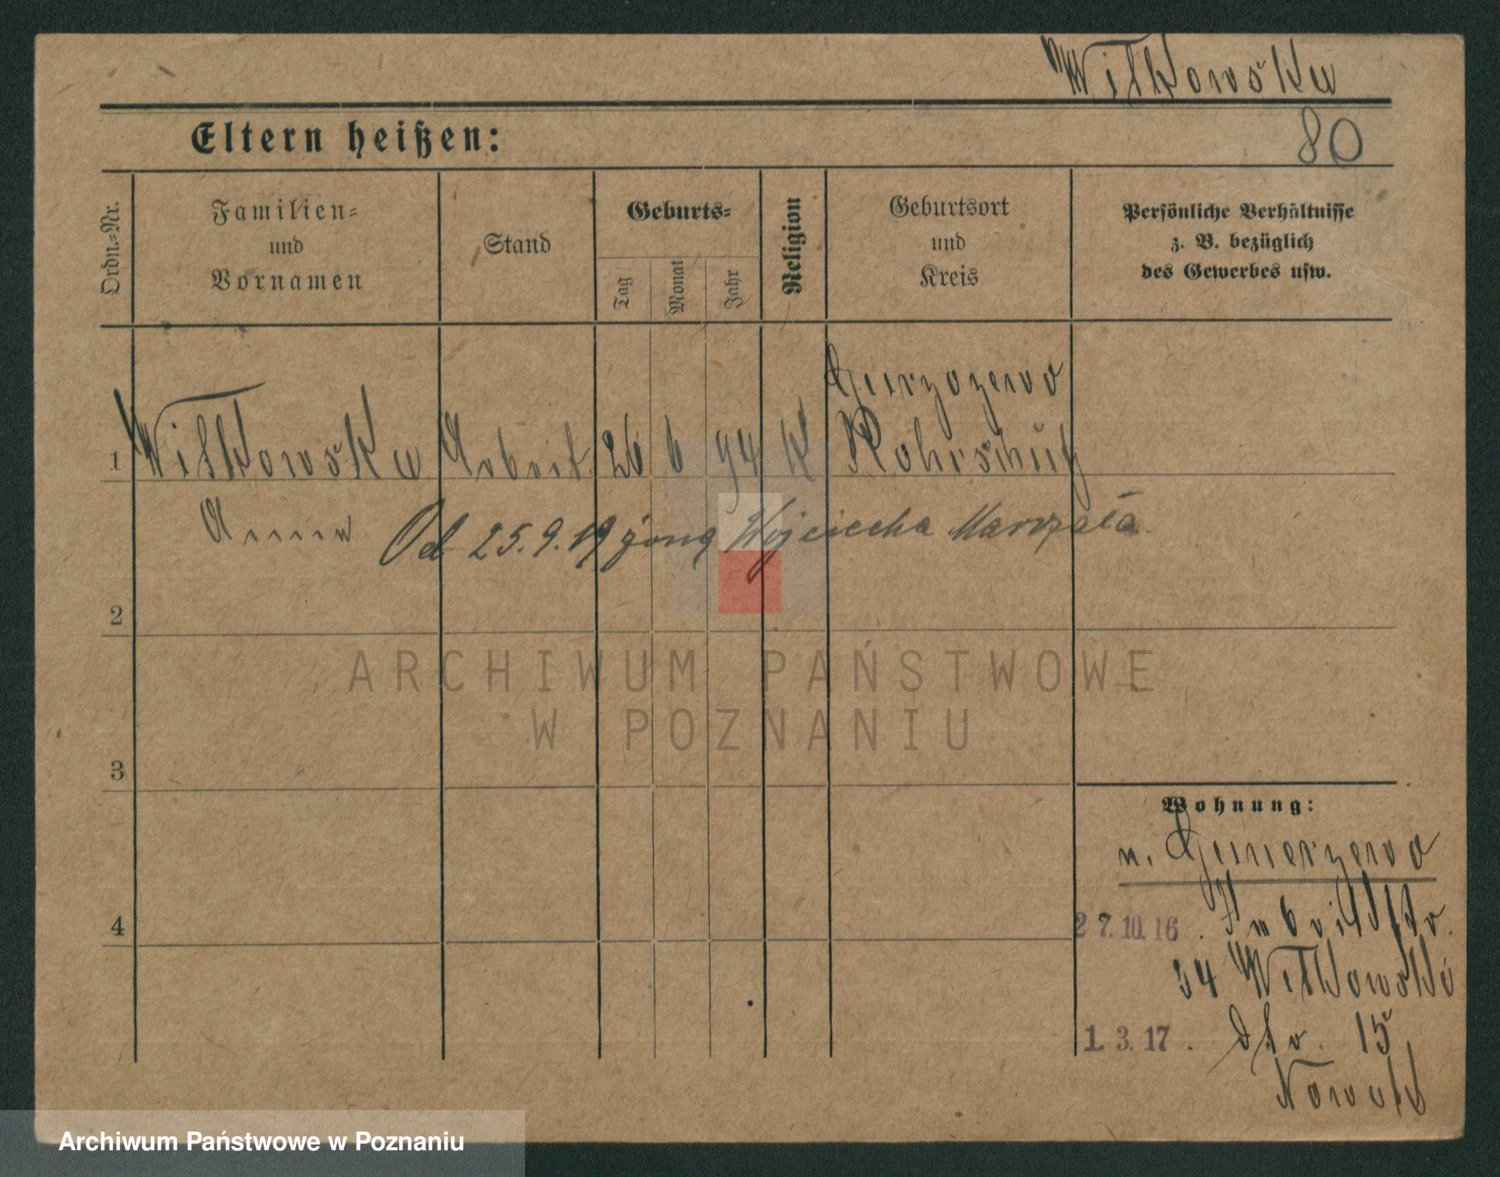 Witkowska
Eltern heißen:
80
Ordn.-Nr.
Familien-
und
Vornamen
Stand
Geburts-
Tag
Monat
Jahr
Religion
Geburtsort
und
Kreis
Persönliche Verhältnisse
z. B. bezüglich
des Gewerbes usw.
1
Witkowska
Arbeit.
26
6
94
K
Gurzozewo
Kohrschütz
Anna
Od 25.9.19 żona Wojciecha Marszała
2
ARCHIWUM PAŃSTWOWE
W POZNANIU
3
Wohnung:
n.
4
27.10.16.
34 Witkowski
1.3.17. dto. 15
Nowak
Archiwum Państwowe w Poznaniu